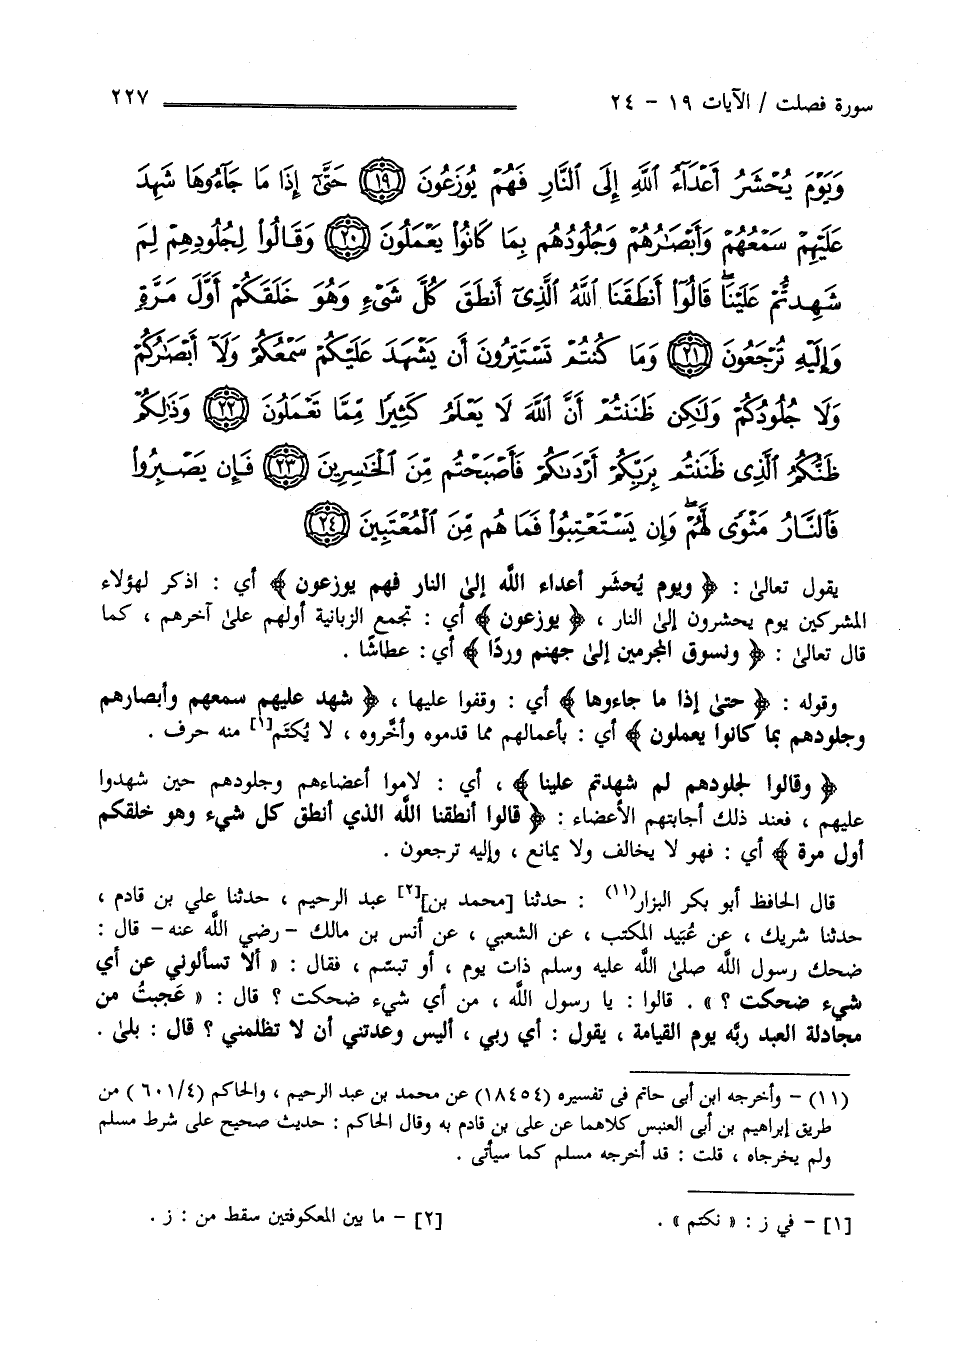 سورة فصلت / الآيات ١٩ - ٢٤ ٢٢٧
وَيَوْمَ يُحْشَرُ أَعْدَآءُ ٱللَّهِ إِلَى ٱلنَّارِ فَهُمْ يُوزَعُونَ ﴿١٩﴾ حَتَّىٰٓ إِذَا مَا جَآءُوهَا شَهِدَ
عَلَيْهِمْ سَمْعُهُمْ وَأَبْصَٰرُهُمْ وَجُلُودُهُم بِمَا كَانُوا۟ يَعْمَلُونَ ﴿٢٠﴾ وَقَالُوا۟ لِجُلُودِهِمْ لِمَ
شَهِدتُّمْ عَلَيْنَا ۖ قَالُوٓا۟ أَنطَقَنَا ٱللَّهُ ٱلَّذِىٓ أَنطَقَ كُلَّ شَىْءٍ وَهُوَ خَلَقَكُمْ أَوَّلَ مَرَّةٍ
وَإِلَيْهِ تُرْجَعُونَ ﴿٢١﴾ وَمَا كُنتُمْ تَسْتَتِرُونَ أَن يَشْهَدَ عَلَيْكُمْ سَمْعُكُمْ وَلَآ أَبْصَٰرُكُمْ
وَلَا جُلُودُكُمْ وَلَٰكِن ظَنَنتُمْ أَنَّ ٱللَّهَ لَا يَعْلَمُ كَثِيرًا مِّمَّا تَعْمَلُونَ ﴿٢٢﴾ وَذَٰلِكُمْ
ظَنُّكُمُ ٱلَّذِى ظَنَنتُم بِرَبِّكُمْ أَرْدَىٰكُمْ فَأَصْبَحْتُم مِّنَ ٱلْخَٰسِرِينَ ﴿٢٣﴾ فَإِن يَصْبِرُوا۟
فَٱلنَّارُ مَثْوًى لَّهُمْ ۖ وَإِن يَسْتَعْتِبُوا۟ فَمَا هُم مِّنَ ٱلْمُعْتَبِينَ ﴿٢٤﴾
يقول تعالىٰ : ﴿ ويوم يُحشَر أعداء اللَّه إلىٰ النار فهم يوزعون ﴾ أي : اذكر لهؤلاء
المشركين يوم يحشرون إلىٰ النار ، ﴿ يوزعون ﴾ أي : تجمع الزبانية أولهم علىٰ آخرهم ، كما
قال تعالىٰ : ﴿ ونسوق المجرمين إلىٰ جهنم وردًا ﴾ أي : عطاشًا .
وقوله : ﴿ حتىٰ إذا ما جاءوها ﴾ أي : وقفوا عليها ، ﴿ شهد عليهم سمعهم وأبصارهم
وجلودهم بما كانوا يعملون ﴾ أي : بأعمالهم مما قدموه وأخَّروه ، لا يُكتَم[١] منه حرف .
﴿ وقالوا لجلودهم لم شهدتم علينا ﴾ ، أي : لاموا أعضاءهم وجلودهم حين شهدوا
عليهم ، فعند ذلك أجابتهم الأعضاء : ﴿ قالوا أنطقنا اللَّه الذي أنطق كل شيء وهو خلقكم
أول مرة ﴾ أي : فهو لا يخالف ولا يمانع ، وإليه ترجعون .
قال الحافظ أبو بكر البزار(١١) : حدثنا [محمد بن][٢] عبد الرحيم ، حدثنا علي بن قادم ،
حدثنا شريك ، عن عُبَيد المكتب ، عن الشعبي ، عن أنس بن مالك - رضي اللَّه عنه - قال :
ضحك رسول اللَّه صلىٰ اللَّه عليه وسلم ذات يوم ، أو تبسَّم ، فقال : « ألا تسألوني عن أي
شيء ضحكت ؟ » . قالوا : يا رسول اللَّه ، من أي شيء ضحكت ؟ قال : « عَجبتُ من
مجادلة العبد ربَّه يوم القيامة ، يقول : أي ربي ، أليس وعدتني أن لا تظلمني ؟ قال : بلىٰ .
(١١) - وأخرجه ابن أبى حاتم فى تفسيره (١٨٤٥٤) عن محمد بن عبد الرحيم ، والحاكم (٦٠١/٤) من
طريق إبراهيم بن أبى العنبس كلاهما عن على بن قادم به وقال الحاكم : حديث صحيح على شرط مسلم
ولم يخرجاه ، قلت : قد أخرجه مسلم كما سيأتى .
[١] - في ز : « نكتم » . [٢] - ما بين المعكوفتين سقط من : ز .